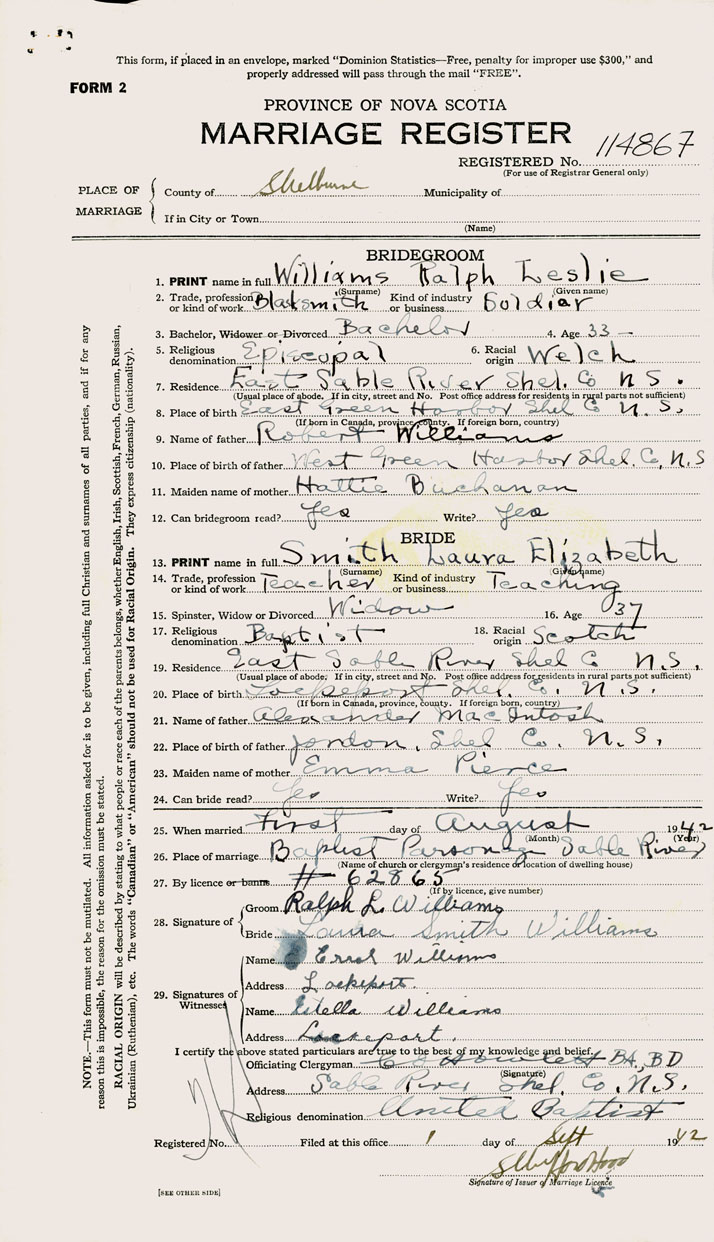 This form, if placed in an envelope, marked "Dominion Statistics—Free, penalty for improper use $300," and
properly addressed will pass through the mail "FREE".
FORM 2
PROVINCE OF NOVA SCOTIA
MARRIAGE REGISTER
114867
REGISTERED No.
(For use of Registrar General only)
PLACE OF MARRIAGE
County of Shelburne Municipality of
If in City or Town
(Name)
BRIDEGROOM
1. PRINT name in full Williams Ralph Leslie
(Surname) (Given name)
2. Trade, profession or kind of work Blaksmith Kind of industry or business Soldiar
3. Bachelor, Widower or Divorced Bachelor 4. Age 33 -
5. Religious denomination Episcopal 6. Racial origin Welch
7. Residence East Sable River Shel. Co N S.
(Usual place of abode. If in city, street and No. Post office address for residents in rural parts not sufficient)
8. Place of birth East Green Harbor Shel Co N. S.
(If born in Canada, province, county. If foreign born, country)
9. Name of father Robert Williams
10. Place of birth of father West Green Harbor Shel. Co, N.S
11. Maiden name of mother Hattie Buchanan
12. Can bridegroom read? Yes Write? Yes
BRIDE
13. PRINT name in full Smith Laura Elizabeth
(Surname) (Given name)
14. Trade, profession or kind of work Teacher Kind of industry or business Teaching
15. Spinster, Widow or Divorced Widow 16. Age 37
17. Religious denomination Baptist 18. Racial origin Scotch
19. Residence East Sable River Shel Co N.S.
(Usual place of abode. If in city, street and No. Post office address for residents in rural parts not sufficient)
20. Place of birth Lockeport Shel. Co. N. S.
(If born in Canada, province, county. If foreign born, country)
21. Name of father Alexander MacIntosh
22. Place of birth of father Jordon, Shel Co. N. S.
23. Maiden name of mother Emma Pierce
24. Can bride read? Yes Write? Yes
25. When married First day of August 1942
(Month) (Year)
26. Place of marriage Baptist Parsonage Sable River
(Name of church or clergyman's residence or location of dwelling house)
27. By licence or banns # 62865
(If by licence, give number)
28. Signature of
Groom Ralph L. Williams
Bride Laura Smith Williams
29. Signatures of Witnesses
Name Errol Williams
Address Lockeport.
Name Estella Williams
Address Lockeport.
I certify the above stated particulars are true to the best of my knowledge and belief.
Officiating Clergyman BA, BD
(Signature)
Address Sable River Shel. Co. N.S.
Religious denomination United Baptist
Registered No. Filed at this office 1 day of Sept 1942
Signature of Issuer of Marriage Licence
[SEE OTHER SIDE]
NOTE.—This form must not be mutilated. All information asked for is to be given, including full Christian and surnames of all parties, and if for any
reason this is impossible, the reason for the omission must be stated.
RACIAL ORIGIN will be described by stating to what people or race each of the parents belongs, whether English, Irish, Scottish, French, German, Russian,
Ukrainian (Ruthenian), etc. The words "Canadian" or "American" should not be used for Racial Origin. They express citizenship (nationality).